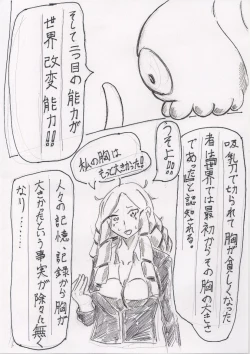 そして二つ目の能力が
世界改変能力!!
吸乳力で切られて胸が貧しくなった
者は世界では最初からその胸の大きさ
であったと認知される。
そよ!!
私の胸は
もって大きかった!!
人々の記憶、記録から胸が
大きかたという事実が除々に無く
なり……